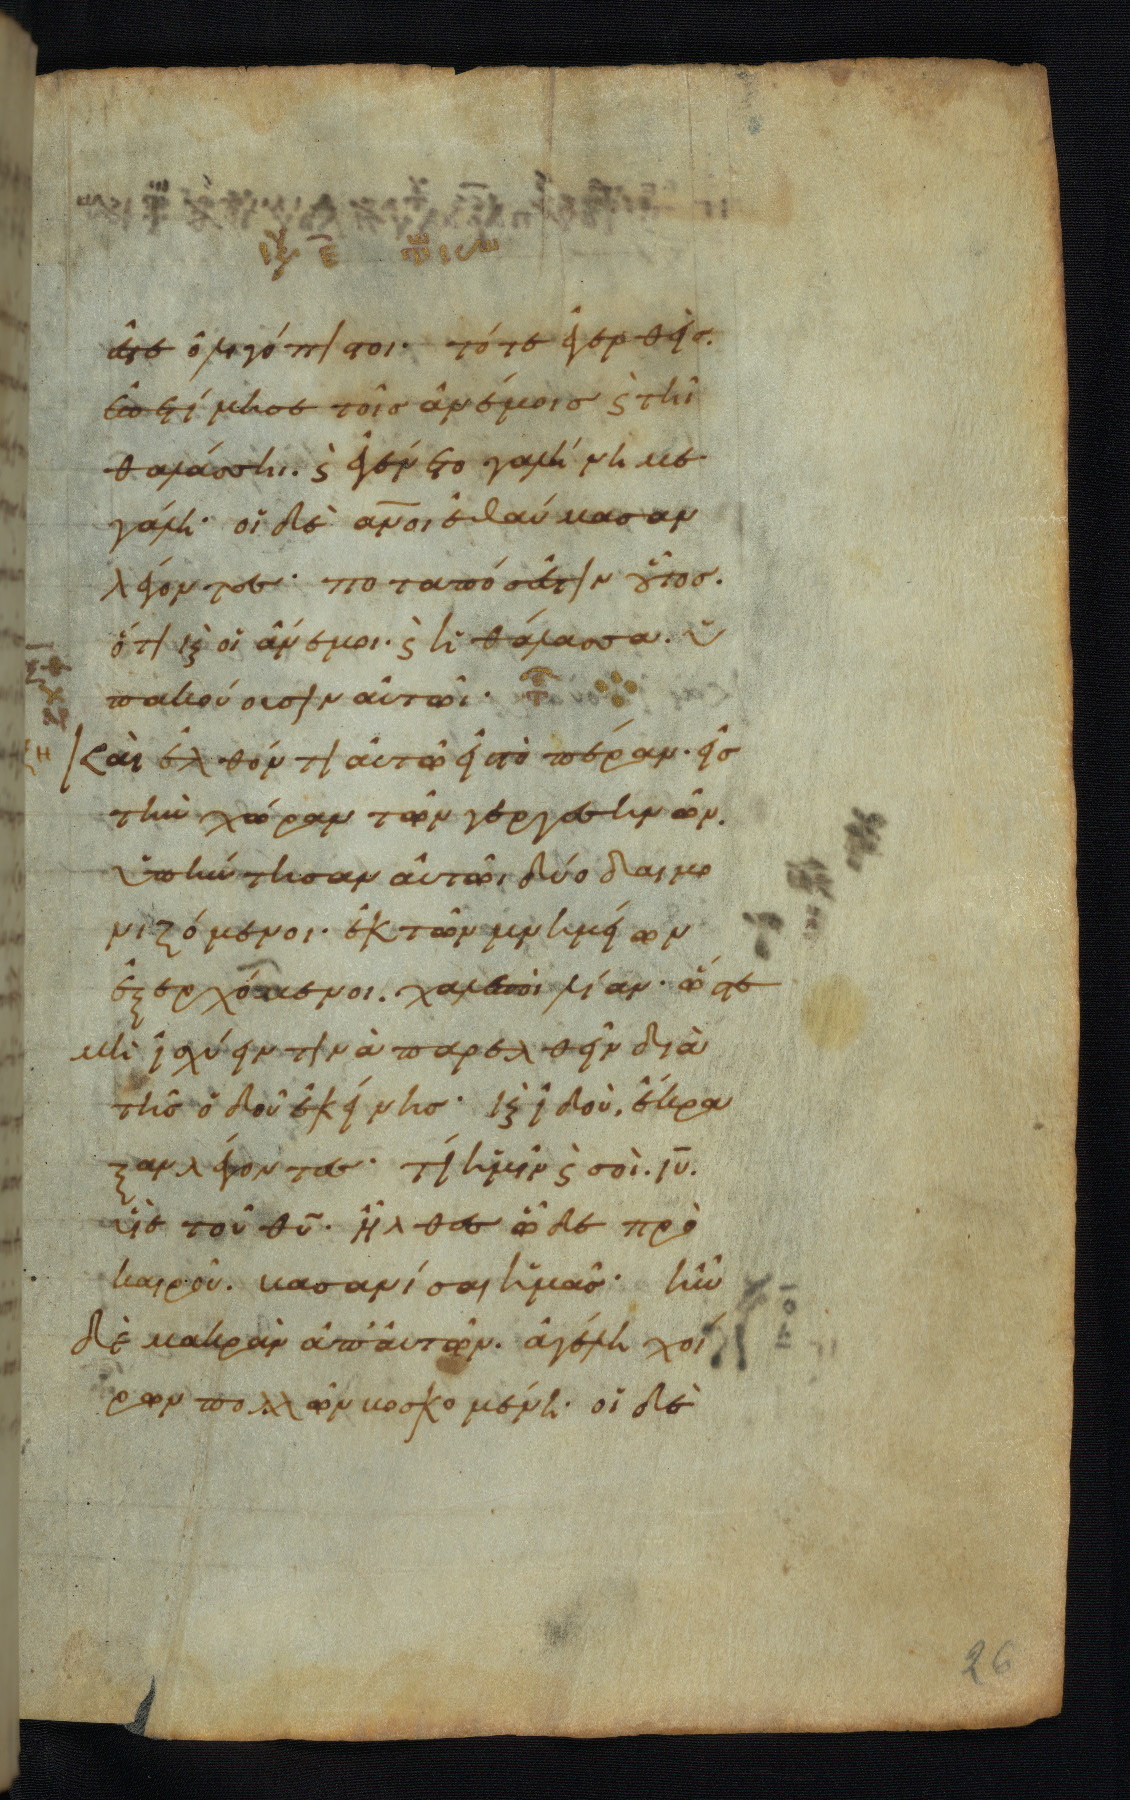 ἐστε ὀλιγόπιστοι· τότε ἐγερθεὶσ.
ἐπετίμησε τοῖσ ἀνέμοισ ϛ τῆι
θαλάσσηι. ϛ ἐγένετο γαλήνη με
γάλη· οἱ δὲ ἄνοι ἐθαύμασαν
λέγοντεσ· ποταπόσ ἐστιν οὗτοσ.
ὅτι κ̀ οἱ ἄνεμοι. ϛ ἡ θάλασσα. ὑ
πακούουσιν αὐτῶι·
Καὶ ἐλθόντι αὐτῶ εἰσ τὸ πέραν· εἰσ
τὴν χώραν τῶν γεργεσηνῶν.
ὑπήντησαν αὐτῶι δύο δαιμο
νιζόμενοι· ἐκ τῶν μνημείων
ἐξερχόμενοι. χαλεποὶ λίαν· ὥστε
μὴ ἰσχύειν τινὰ παρελθεῖν διὰ
τῆσ ὁδοῦ ἐκείνησ· κ̀ ἰδοὺ. ἔκρα
ξαν λέγοντεσ· τί ἡμῖν ϛ σοὶ. ιῦ.
υἱὲ τοῦ θῦ· ἦλθεσ ὧδε πρὸ
καιροῦ. βασανίσαι ἡμᾶσ· ἦν
δὲ μακρὰν ἀπ' αὐτῶν. ἀγέλη χοί
ρων πολλῶν βοσκομένη· οἱ δὲ
26